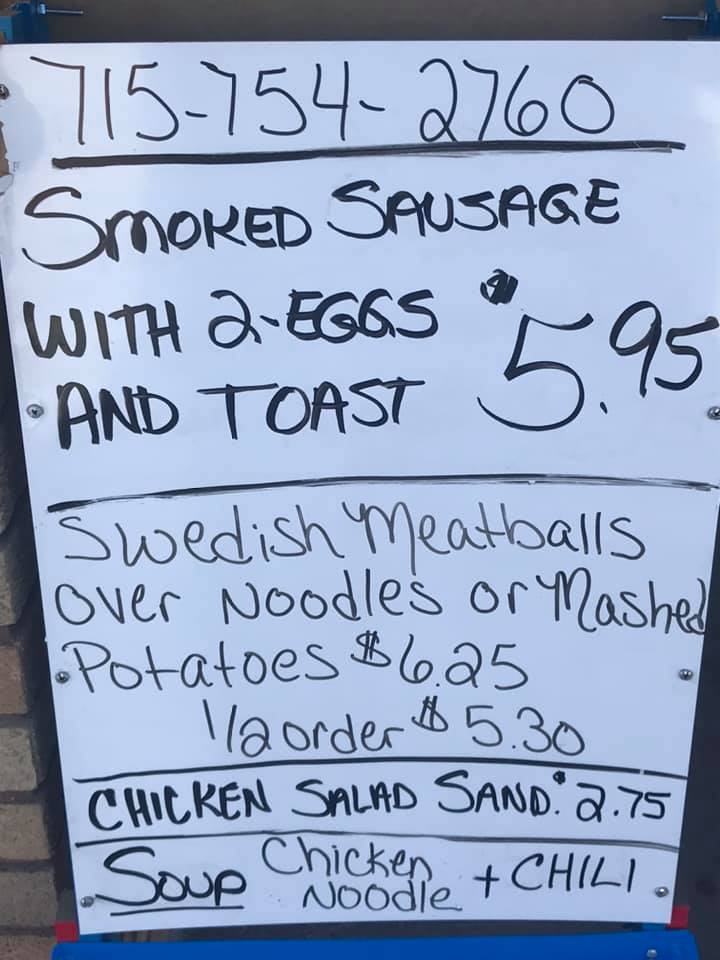 715-754-2760
SMOKED SAUSAGE
WITH 2-EGGS $5.95
AND TOAST
Swedish Meatballs
over Noodles or Mashed
Potatoes $6.25
1/2 order $5.30
CHICKEN SALAD SAND. $2.75
SOUP Chicken Noodle + CHILI